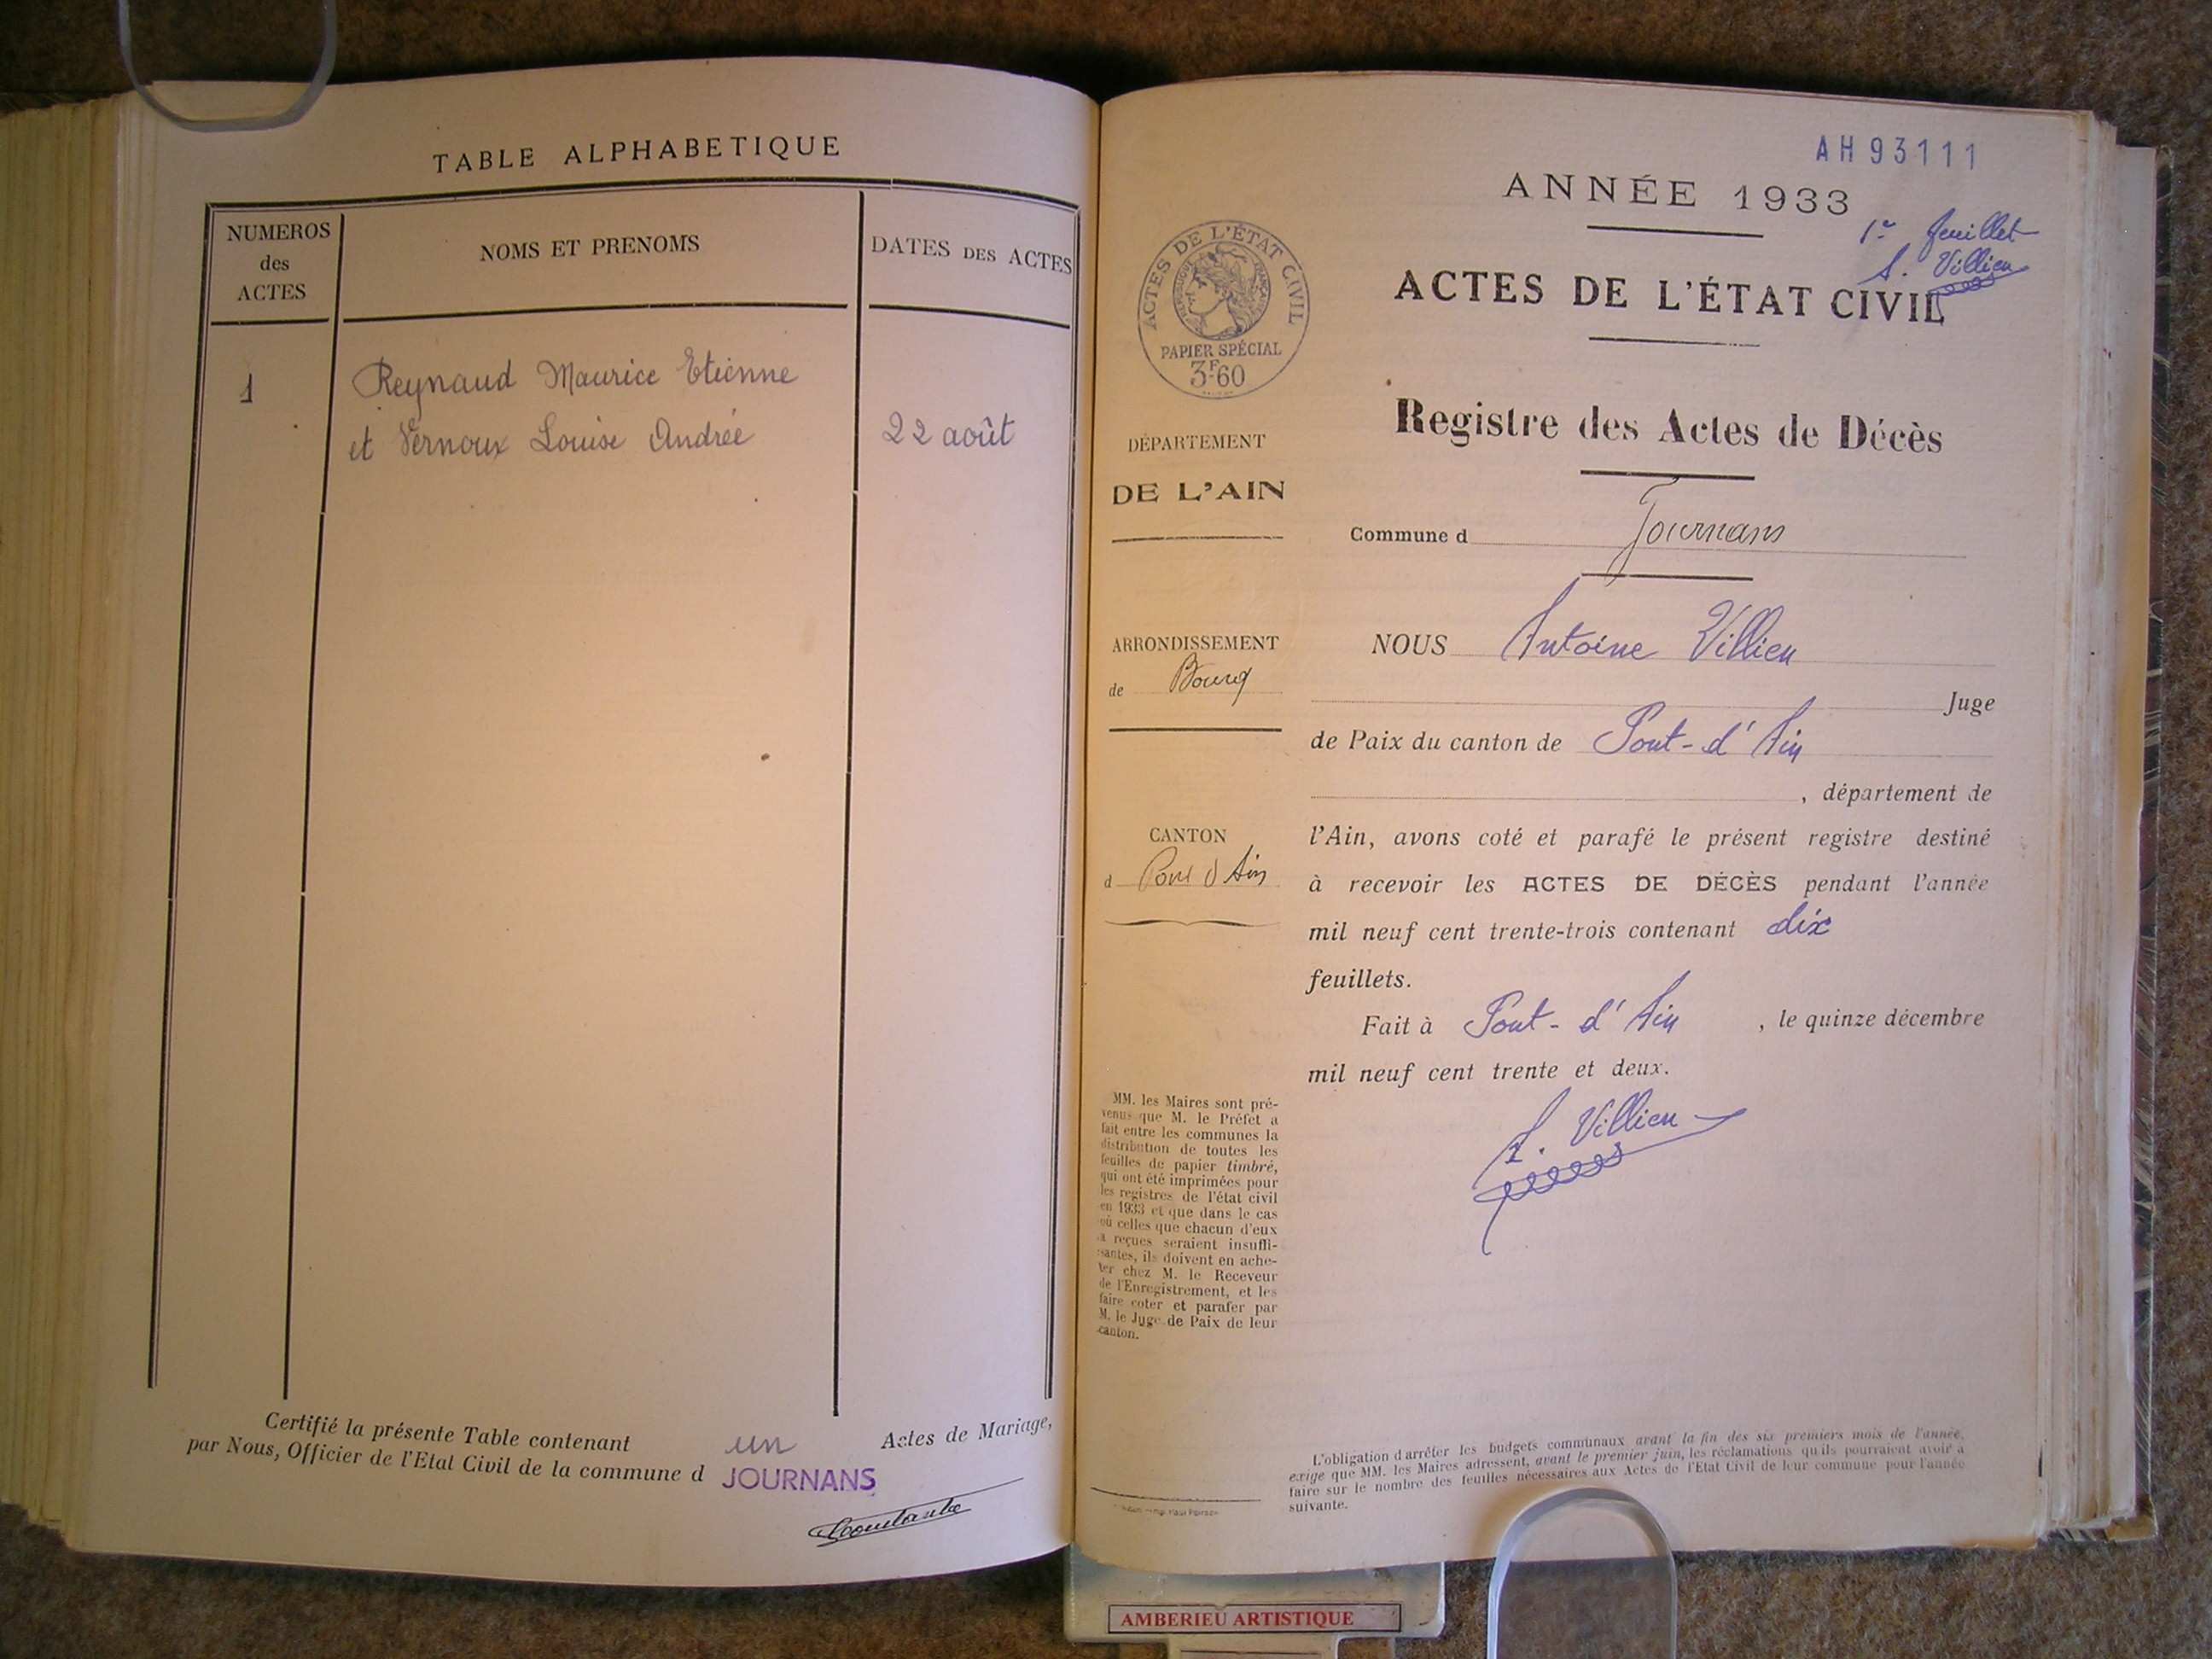 TABLE ALPHABETIQUE
NUMEROS
des
ACTES
NOMS ET PRENOMS
DATES DES ACTES
1
Reynaud Maurice Etienne
et Vernoux Louise Andrée
22 août
Certifié la présente Table contenant un Actes de Mariage,
par Nous, Officier de l'Etat Civil de la commune d JOURNANS
AH93111
ANNÉE 1933
1er feuillet
A. Villien
ACTES DE L'ÉTAT CIVIL
ACTES DE L'ÉTAT CIVIL
RÉPUBLIQUE FRANÇAISE
PAPIER SPÉCIAL
3F60
Registre des Actes de Décès
DÉPARTEMENT
DE L'AIN
Commune d Journans
ARRONDISSEMENT
de Bourg
CANTON
d Pont d'Ain
NOUS Antoine Villien
Juge
de Paix du canton de Pont-d'Ain
, département de
l'Ain, avons coté et parafé le présent registre destiné
à recevoir les ACTES DE DÉCÈS pendant l'année
mil neuf cent trente-trois contenant dix
feuillets.
Fait à Pont-d'Ain , le quinze décembre
mil neuf cent trente et deux.
A. Villien
MM. les Maires sont pré-
venus que M. le Préfet a
fait entre les communes la
distribution de toutes les
feuilles de papier timbré,
qui ont été imprimées pour
les registres de l'état civil
en 1933 et que dans le cas
où celles que chacun d'eux
a reçues seraient insuffi-
santes, ils doivent en ache-
ter chez M. le Receveur
de l'Enregistrement, et les
faire coter et parafer par
M. le Juge de Paix de leur
canton.
L'obligation d'arrêter les budgets communaux avant la fin des six premiers mois de l'année,
exige que MM. les Maires adressent, avant le premier juin, les réclamations qu'ils pourraient avoir à
faire sur le nombre des feuilles nécessaires aux Actes de l'Etat Civil de leur commune pour l'année
suivante.
AMBERIEU ARTISTIQUE